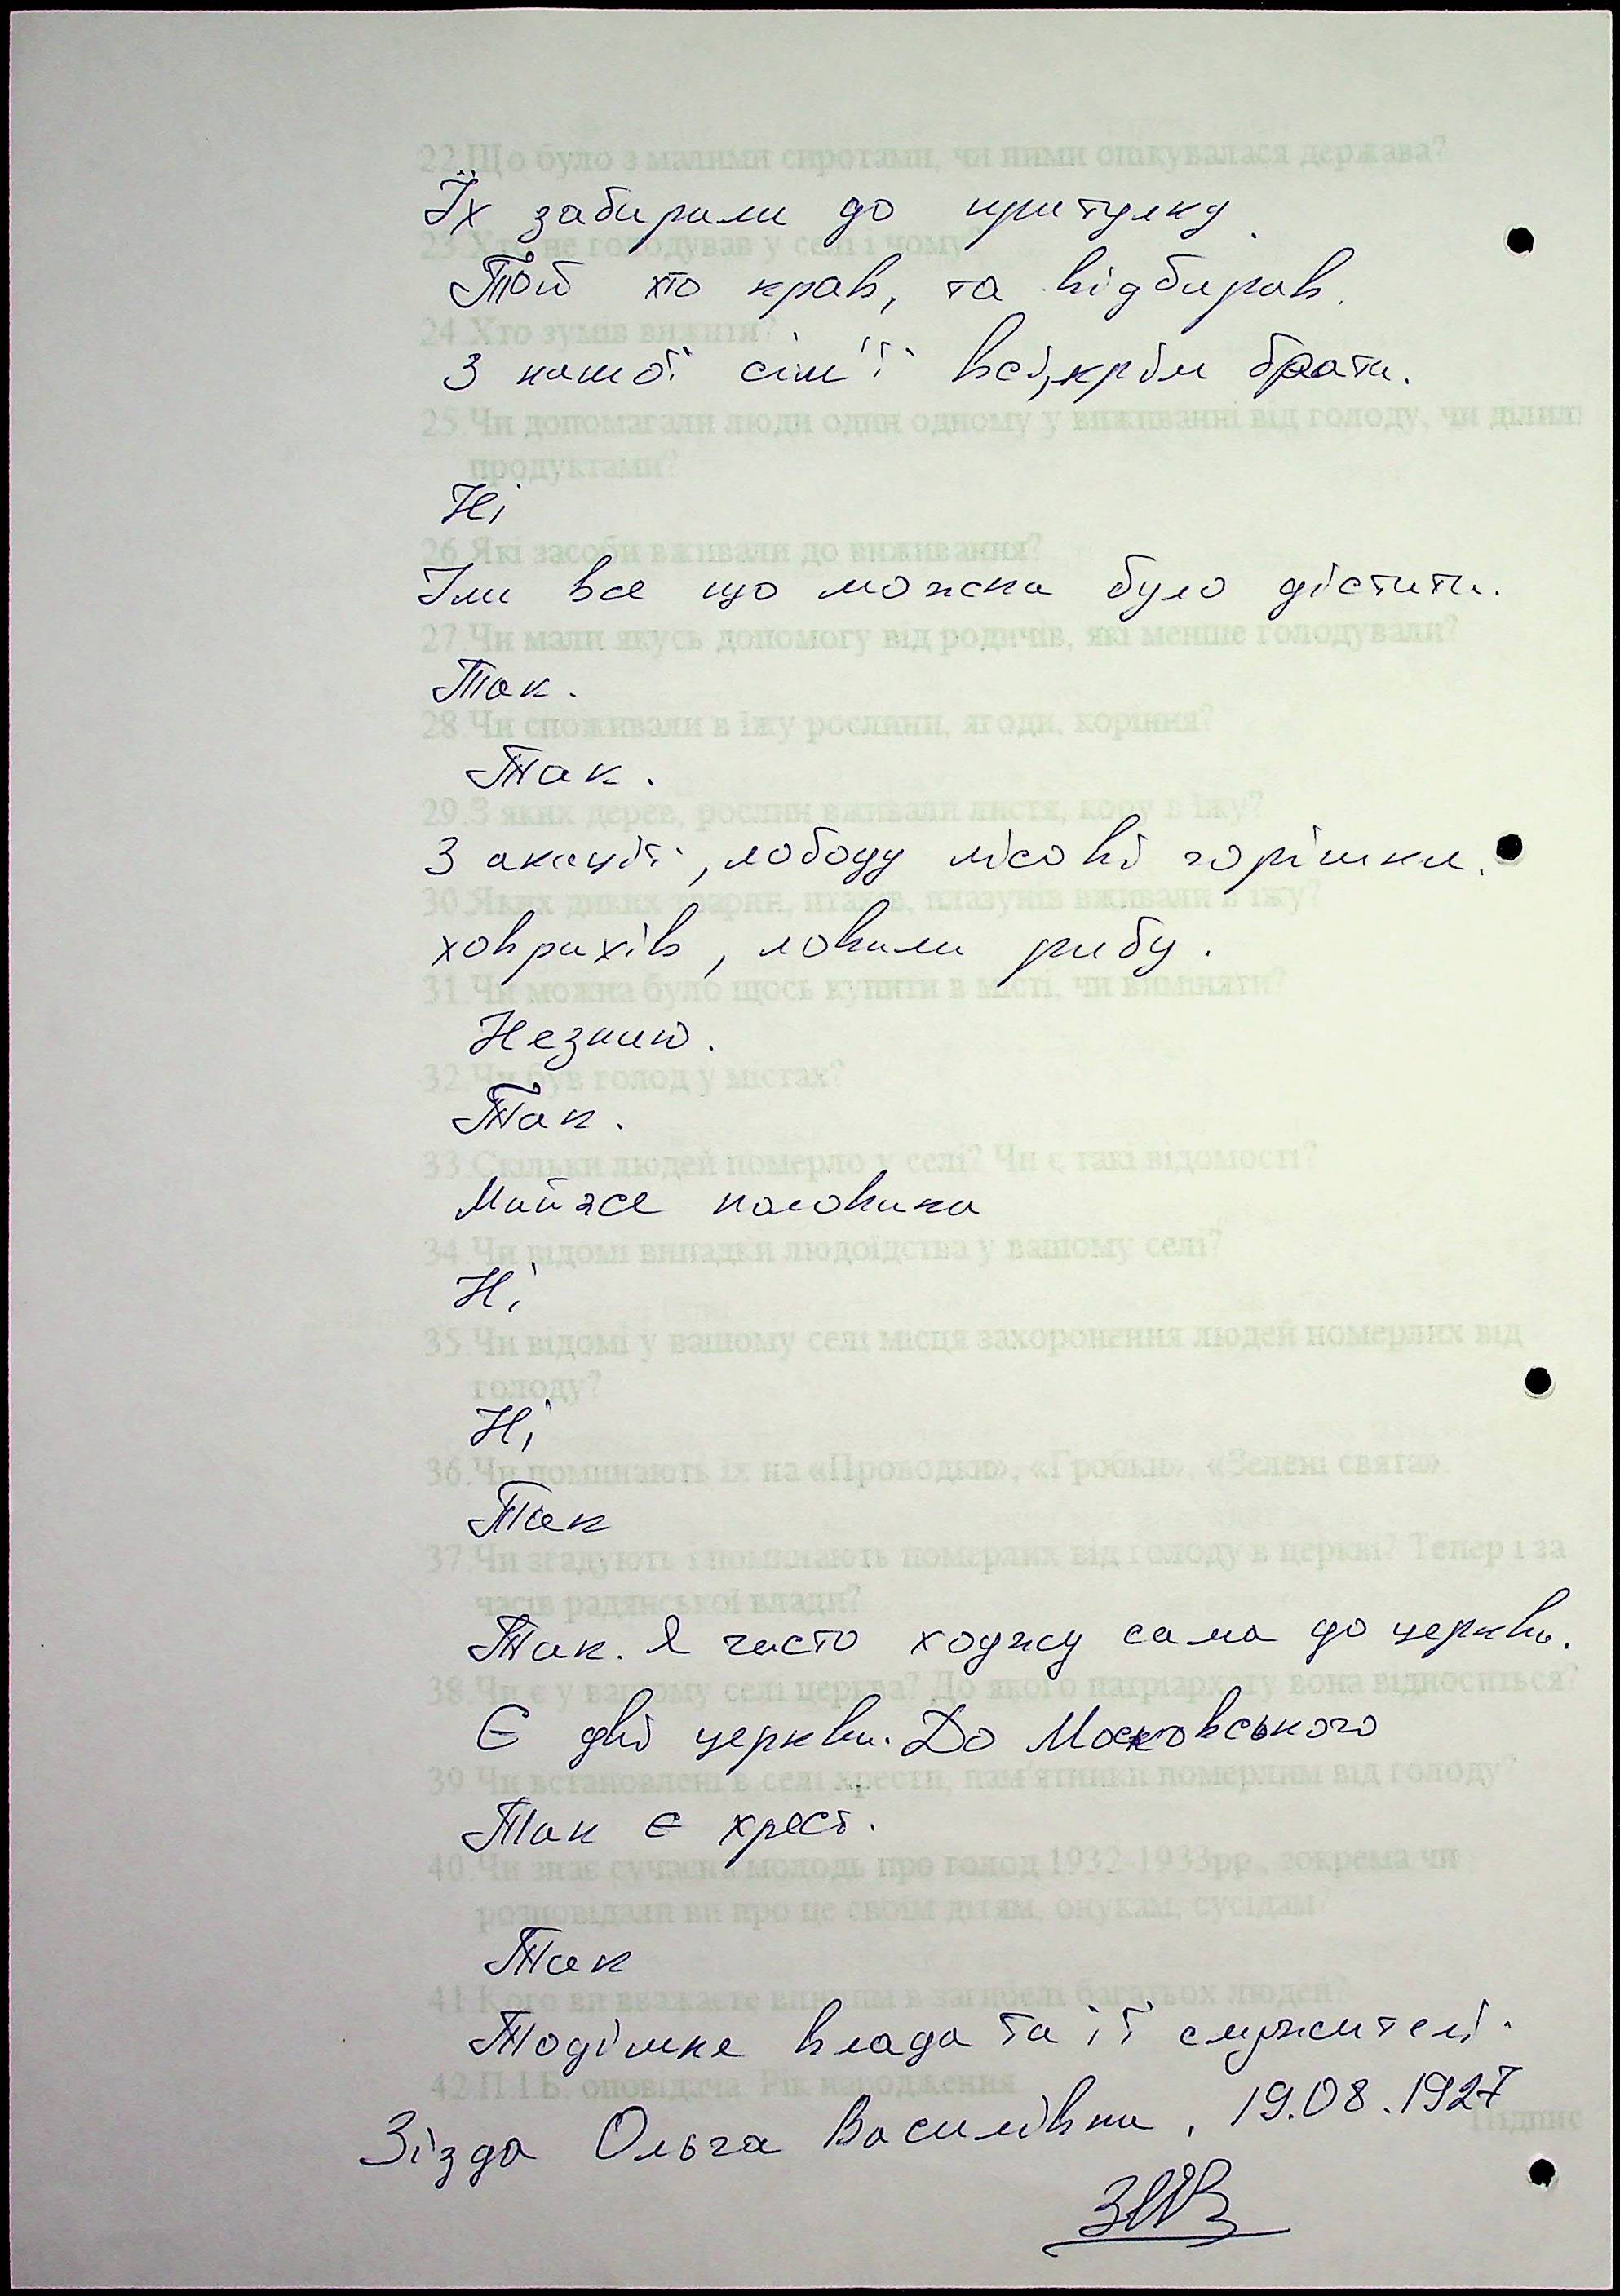 22.Що було з малими сиротами, чи ними опікувалася держава?
Їх забирали до притулку.
23.Хто не голодував у селі і чому?
Той хто крав, та відбирав.
24.Хто зумів вижити?
З нашої сім'ї всі, крім брата.
25.Чи допомагали люди один одному у виживанні від голоду, чи ділили
продуктами?
Ні
26.Які засоби вживали до виживання?
Їли все що можна було дістати.
27.Чи мали якусь допомогу від родичів, які менше голодували?
Так.
28.Чи споживали в їжу рослини, ягоди, коріння?
Так.
29.З яких дерев, рослин вживали листя, кору в їжу?
З акації, лободу лісові горішки.
30.Яких диких тварин, птахів, плазунів вживали в їжу?
ховрахів, ловили рибу.
31.Чи можна було щось купити в місті, чи виміняти?
Незнаю.
32.Чи був голод у містах?
Так.
33.Скільки людей померло у селі? Чи є такі відомості?
Майже половина
34.Чи відомі випадки людоїдства у вашому селі?
Ні
35.Чи відомі у вашому селі місця захоронення людей померлих від
голоду?
Ні
36.Чи поминають їх на «Проводки», «Гробки», «Зелені свята».
Так
37.Чи згадують і поминають померлих від голоду в церкві? Тепер і за
часів радянської влади?
Так. Я часто ходжу сама до церкви.
38.Чи є у вашому селі церква? До якого патріархату вона відноситься?
Є дві церкви. До Московського
39.Чи встановлені в селі хрести, пам'ятники померлим від голоду?
Так є хрест.
40.Чи знає сучасна молодь про голод 1932-1933рр., зокрема чи
розповідали ви про це своїм дітям, онукам, сусідам?
Так
41.Кого ви вважаєте винним в загибелі багатьох людей?
Тодішня влада та її служителі.
42.П.І.Б. оповідача. Рік народження
Зізда Ольга Василівна, 19.08.1927
Підпис